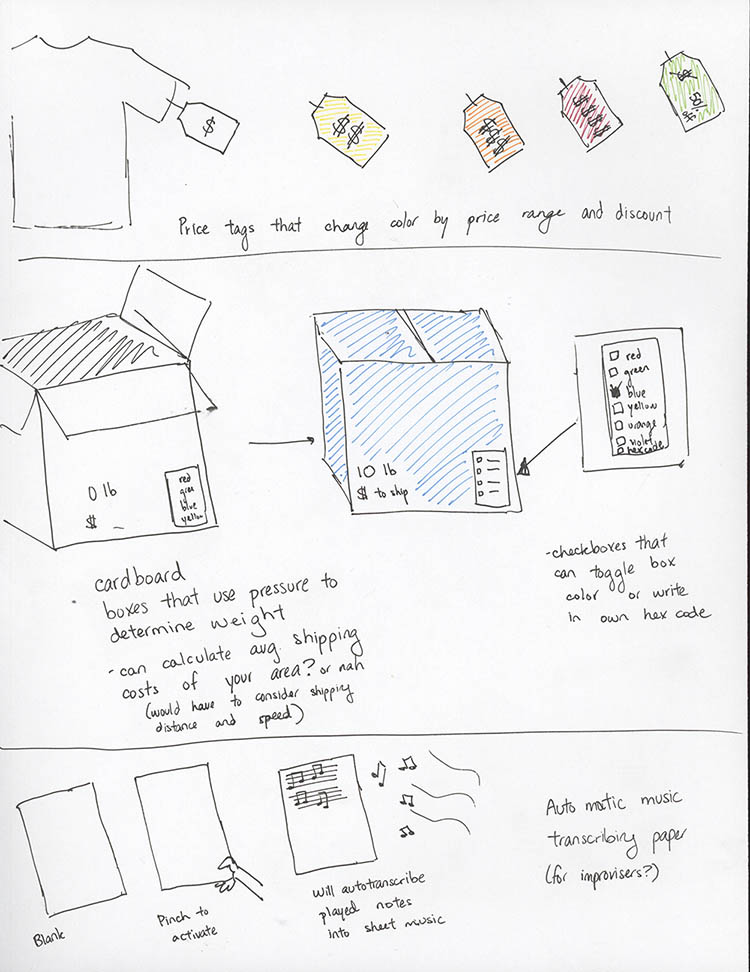 $
$$
$$$
$$$$
$
50%
Price tags that change color by price range and discount
0 lb
$ _
red
gree
blue
yellow
10 lb
$ to ship
red
green
blue
yellow
orange
violet
hex code
cardboard
boxes that use pressure to
determine weight
-can calculate avg. shipping
costs of your area? or nah
(would have to consider shipping
distance and speed)
-checkboxes that
can toggle box
color or write
in own hex code
Blank
Pinch to
activate
Will autotranscribe
played notes
into sheet music
Automatic music
transcribing paper
(for improvisers?)